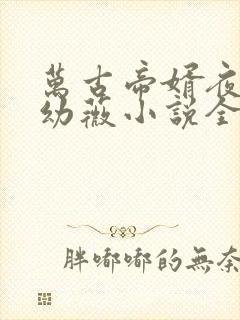 萬古帝婿夜
幼薇小說全
胖嘟嘟的無奈